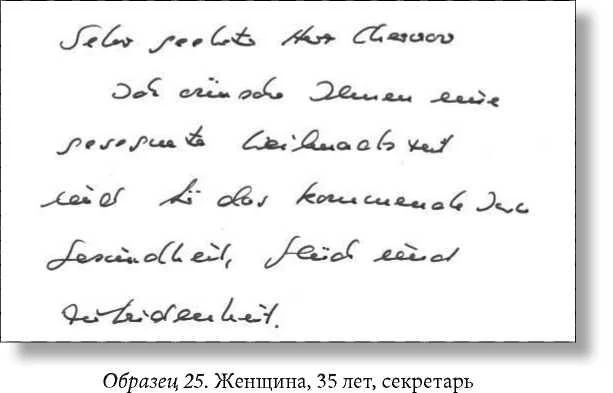 Sehr geehrter Herr
Ich wünsche Ihnen eine
gesegnete Weihnachtszeit
und für das kommende Jahr
Gesundheit, Glück und
Zufriedenheit.
Образец 25. Женщина, 35 лет, секретарь